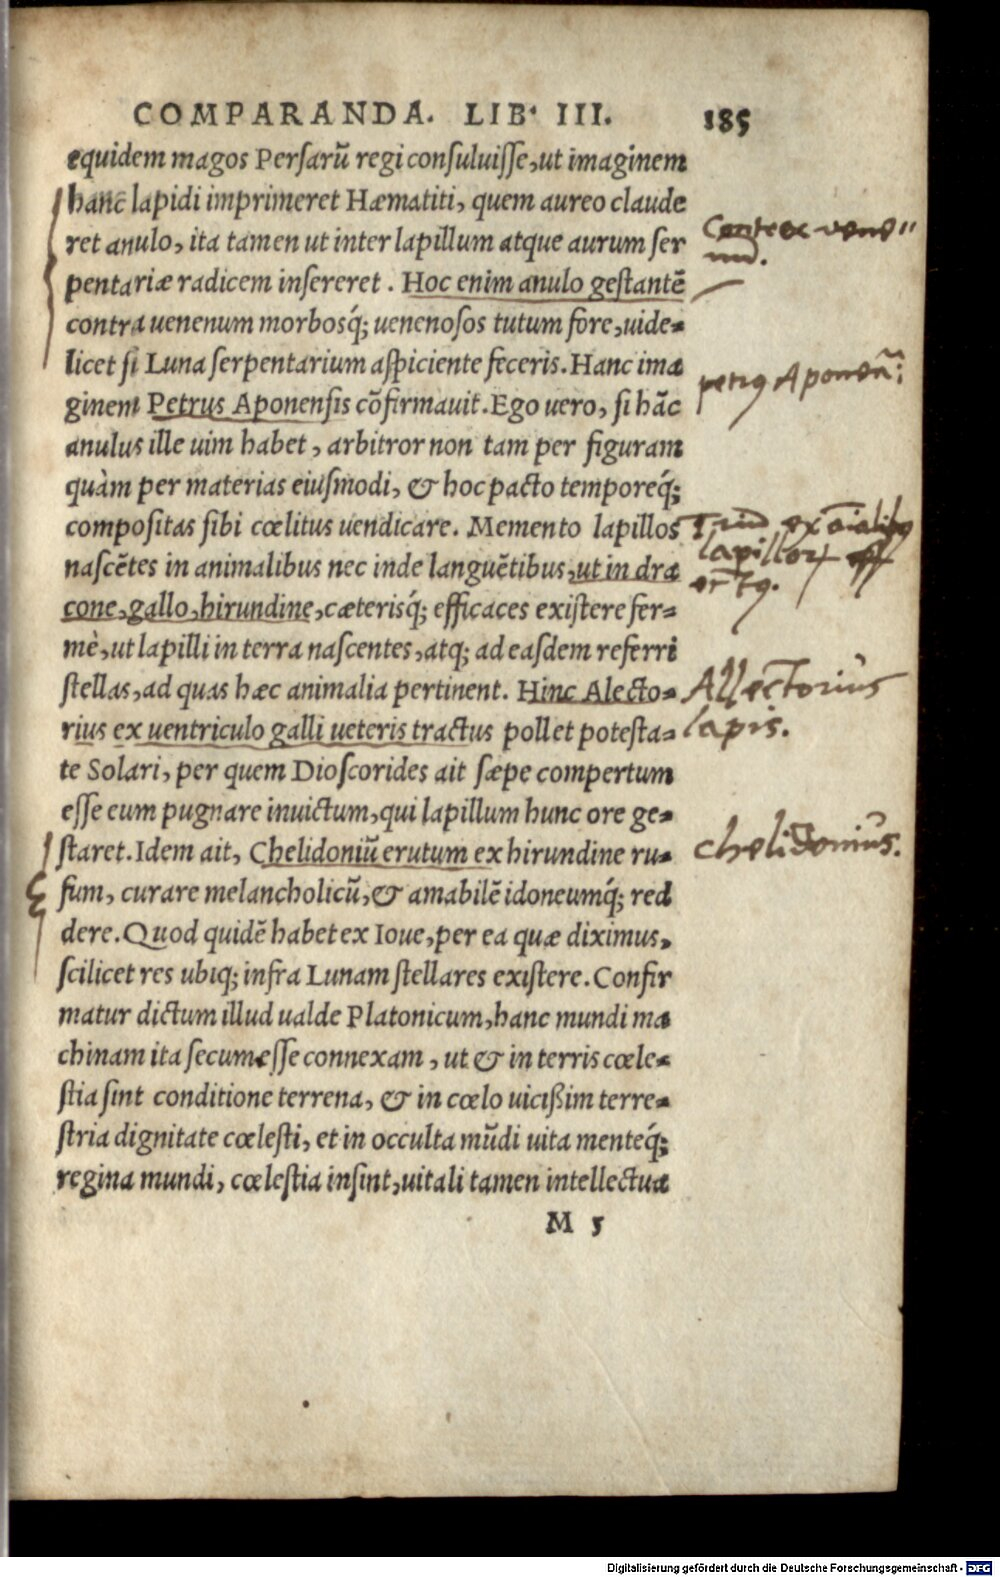 COMPARANDA. LIB. III. 185
equidem magos Persarũ regi consuluisse, ut imaginem
hanc lapidi imprimeret Hæmatiti, quem aureo claude
ret anulo, ita tamen ut inter lapillum atque aurum ser
pentariæ radicem insereret. Hoc enim anulo gestantẽ
contra uenenum morbosq́; uenenosos tutum fore, uide-
licet si Luna serpentarium aspiciente feceris. Hanc ima
ginem Petrus Aponensis cõfirmauit. Ego uero, si hãc
anulus ille uim habet, arbitror non tam per figuram
quàm per materias eiusmodi, & hoc pacto temporeq́;
compositas sibi cœlitus uendicare. Memento lapillos
nascẽtes in animalibus nec inde languẽtibus, ut in dra
cone, gallo, hirundine, cæterisq́; efficaces existere fer-
mè, ut lapilli in terra nascentes, atq; ad easdem referri
stellas, ad quas hæc animalia pertinent. Hinc Alecto-
rius ex uentriculo galli ueteris tractus pollet potesta-
te Solari, per quem Dioscorides ait sæpe compertum
esse eum pugnare inuictum, qui lapillum hunc ore ge-
staret. Idem ait, Chelidoniũ erutum ex hirundine ru-
fum, curare melancholicũ, & amabilẽ idoneumq́; red
dere. Quod quidẽ habet ex Ioue, per ea quæ diximus,
scilicet res ubiq; infra Lunam stellares existere. Confir
matur dictum illud ualde Platonicum, hanc mundi ma
chinam ita secum esse connexam, ut & in terris cœle-
stia sint conditione terrena, & in cœlo uicißim terre-
stria dignitate cœlesti, et in occulta mũdi uita menteq́;
regina mundi, cœlestia insint, uitali tamen intellectua
M 5
petrus Aponen:
lapillor
Allectorius
lapis.
chelidonius.
Digitalisierung gefördert durch die Deutsche Forschungsgemeinschaft - DFG